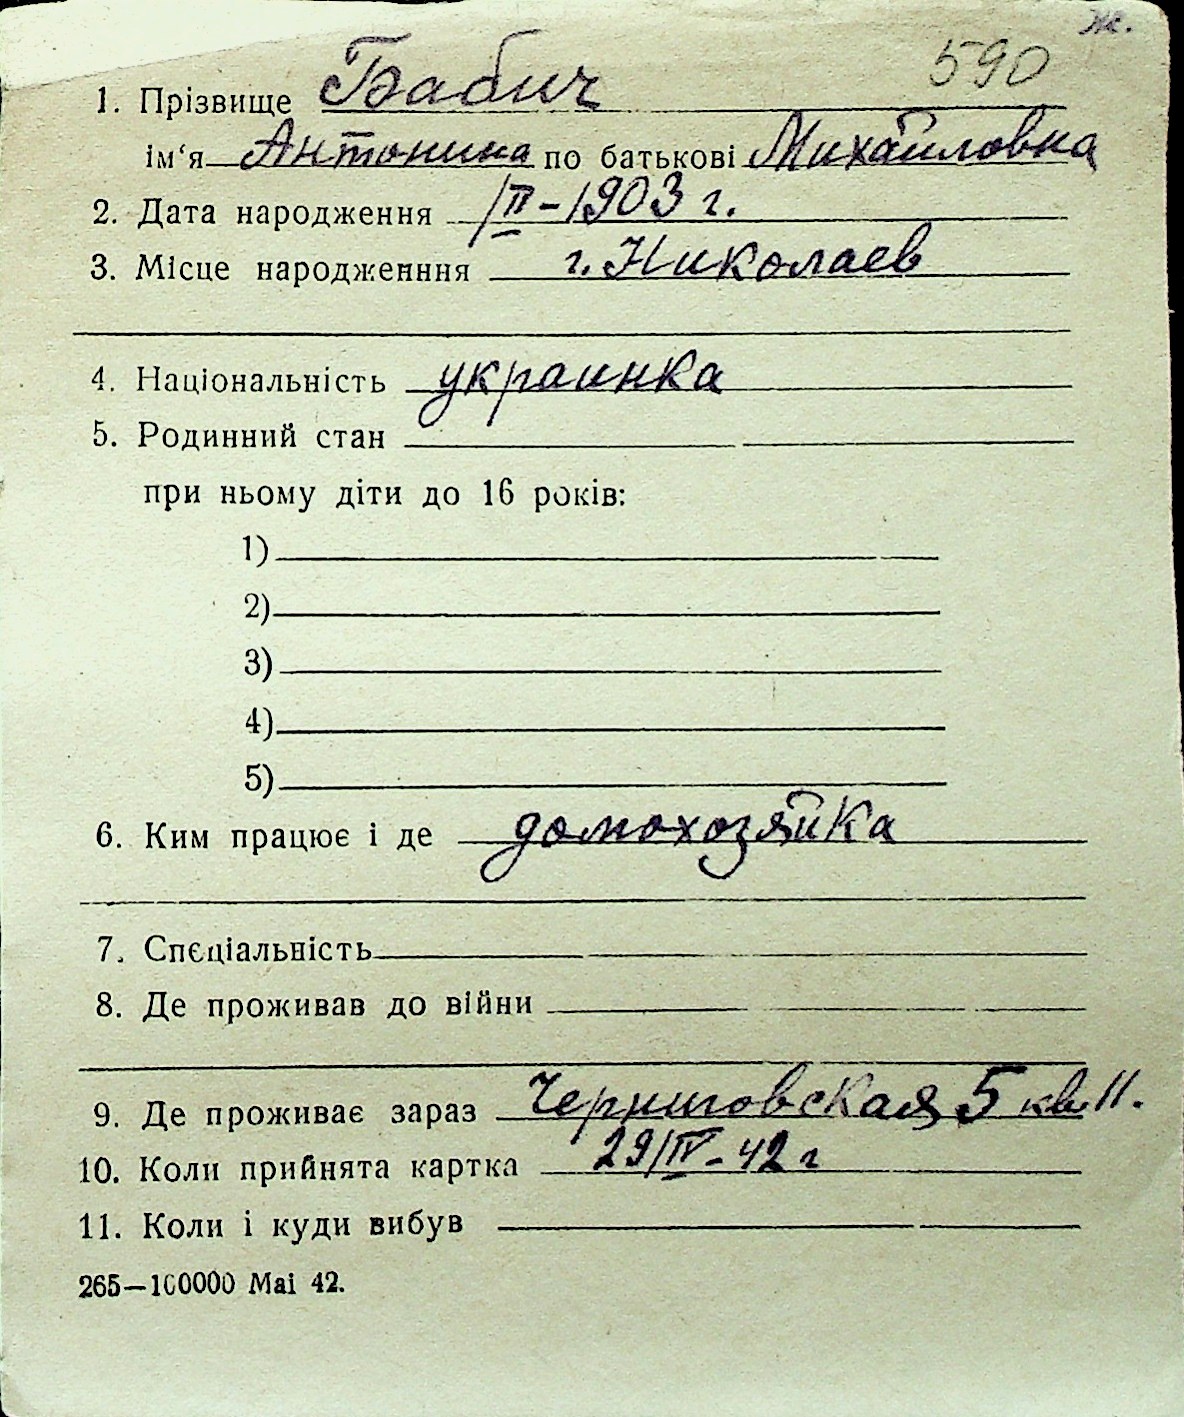 ж.
590
1. Прізвище Бабич
ім‘я Антонина по батькові Михайловна
2. Дата народження /II-1903 г.
3. Місце народженння г. Николаев
4. Національність украинка
5. Родинний стан
при ньому діти до 16 років:
1)
2)
3)
4)
5)
6. Ким працює і де домохозяйка
7. Спєціальність
8. Де проживав до війни
9. Де проживає зараз Черниговская 5 кв 11.
10. Коли прийнята картка 29/IV-42 г
11. Коли і куди вибув
265—100000 Mai 42.